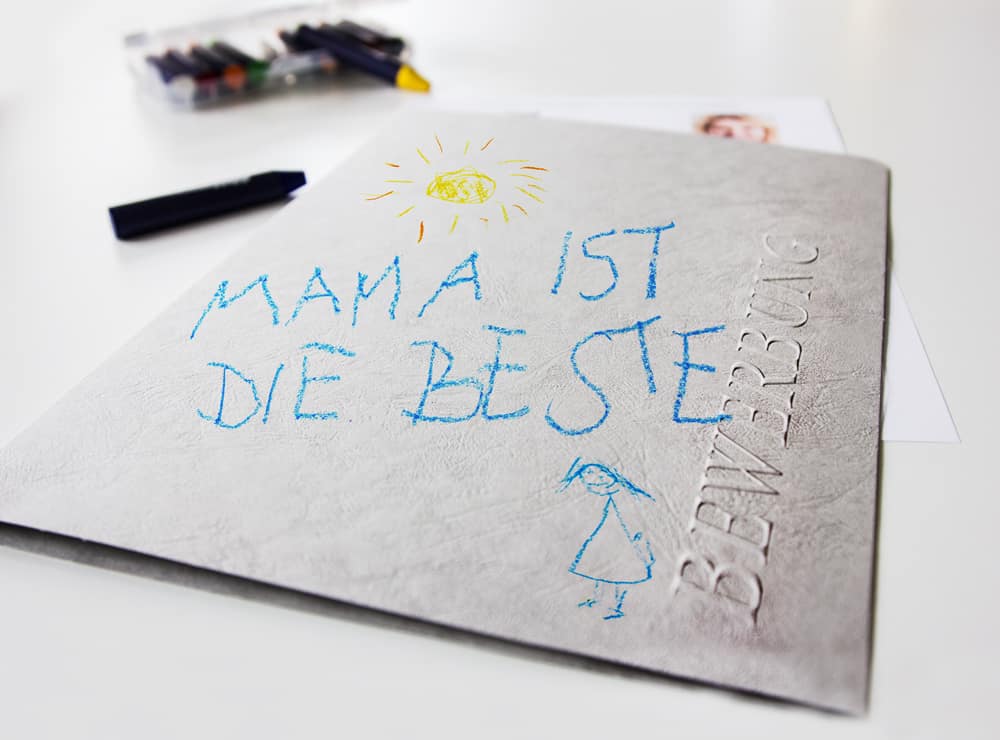 MAMA IST
DIE BESTE
BEWERBUNG